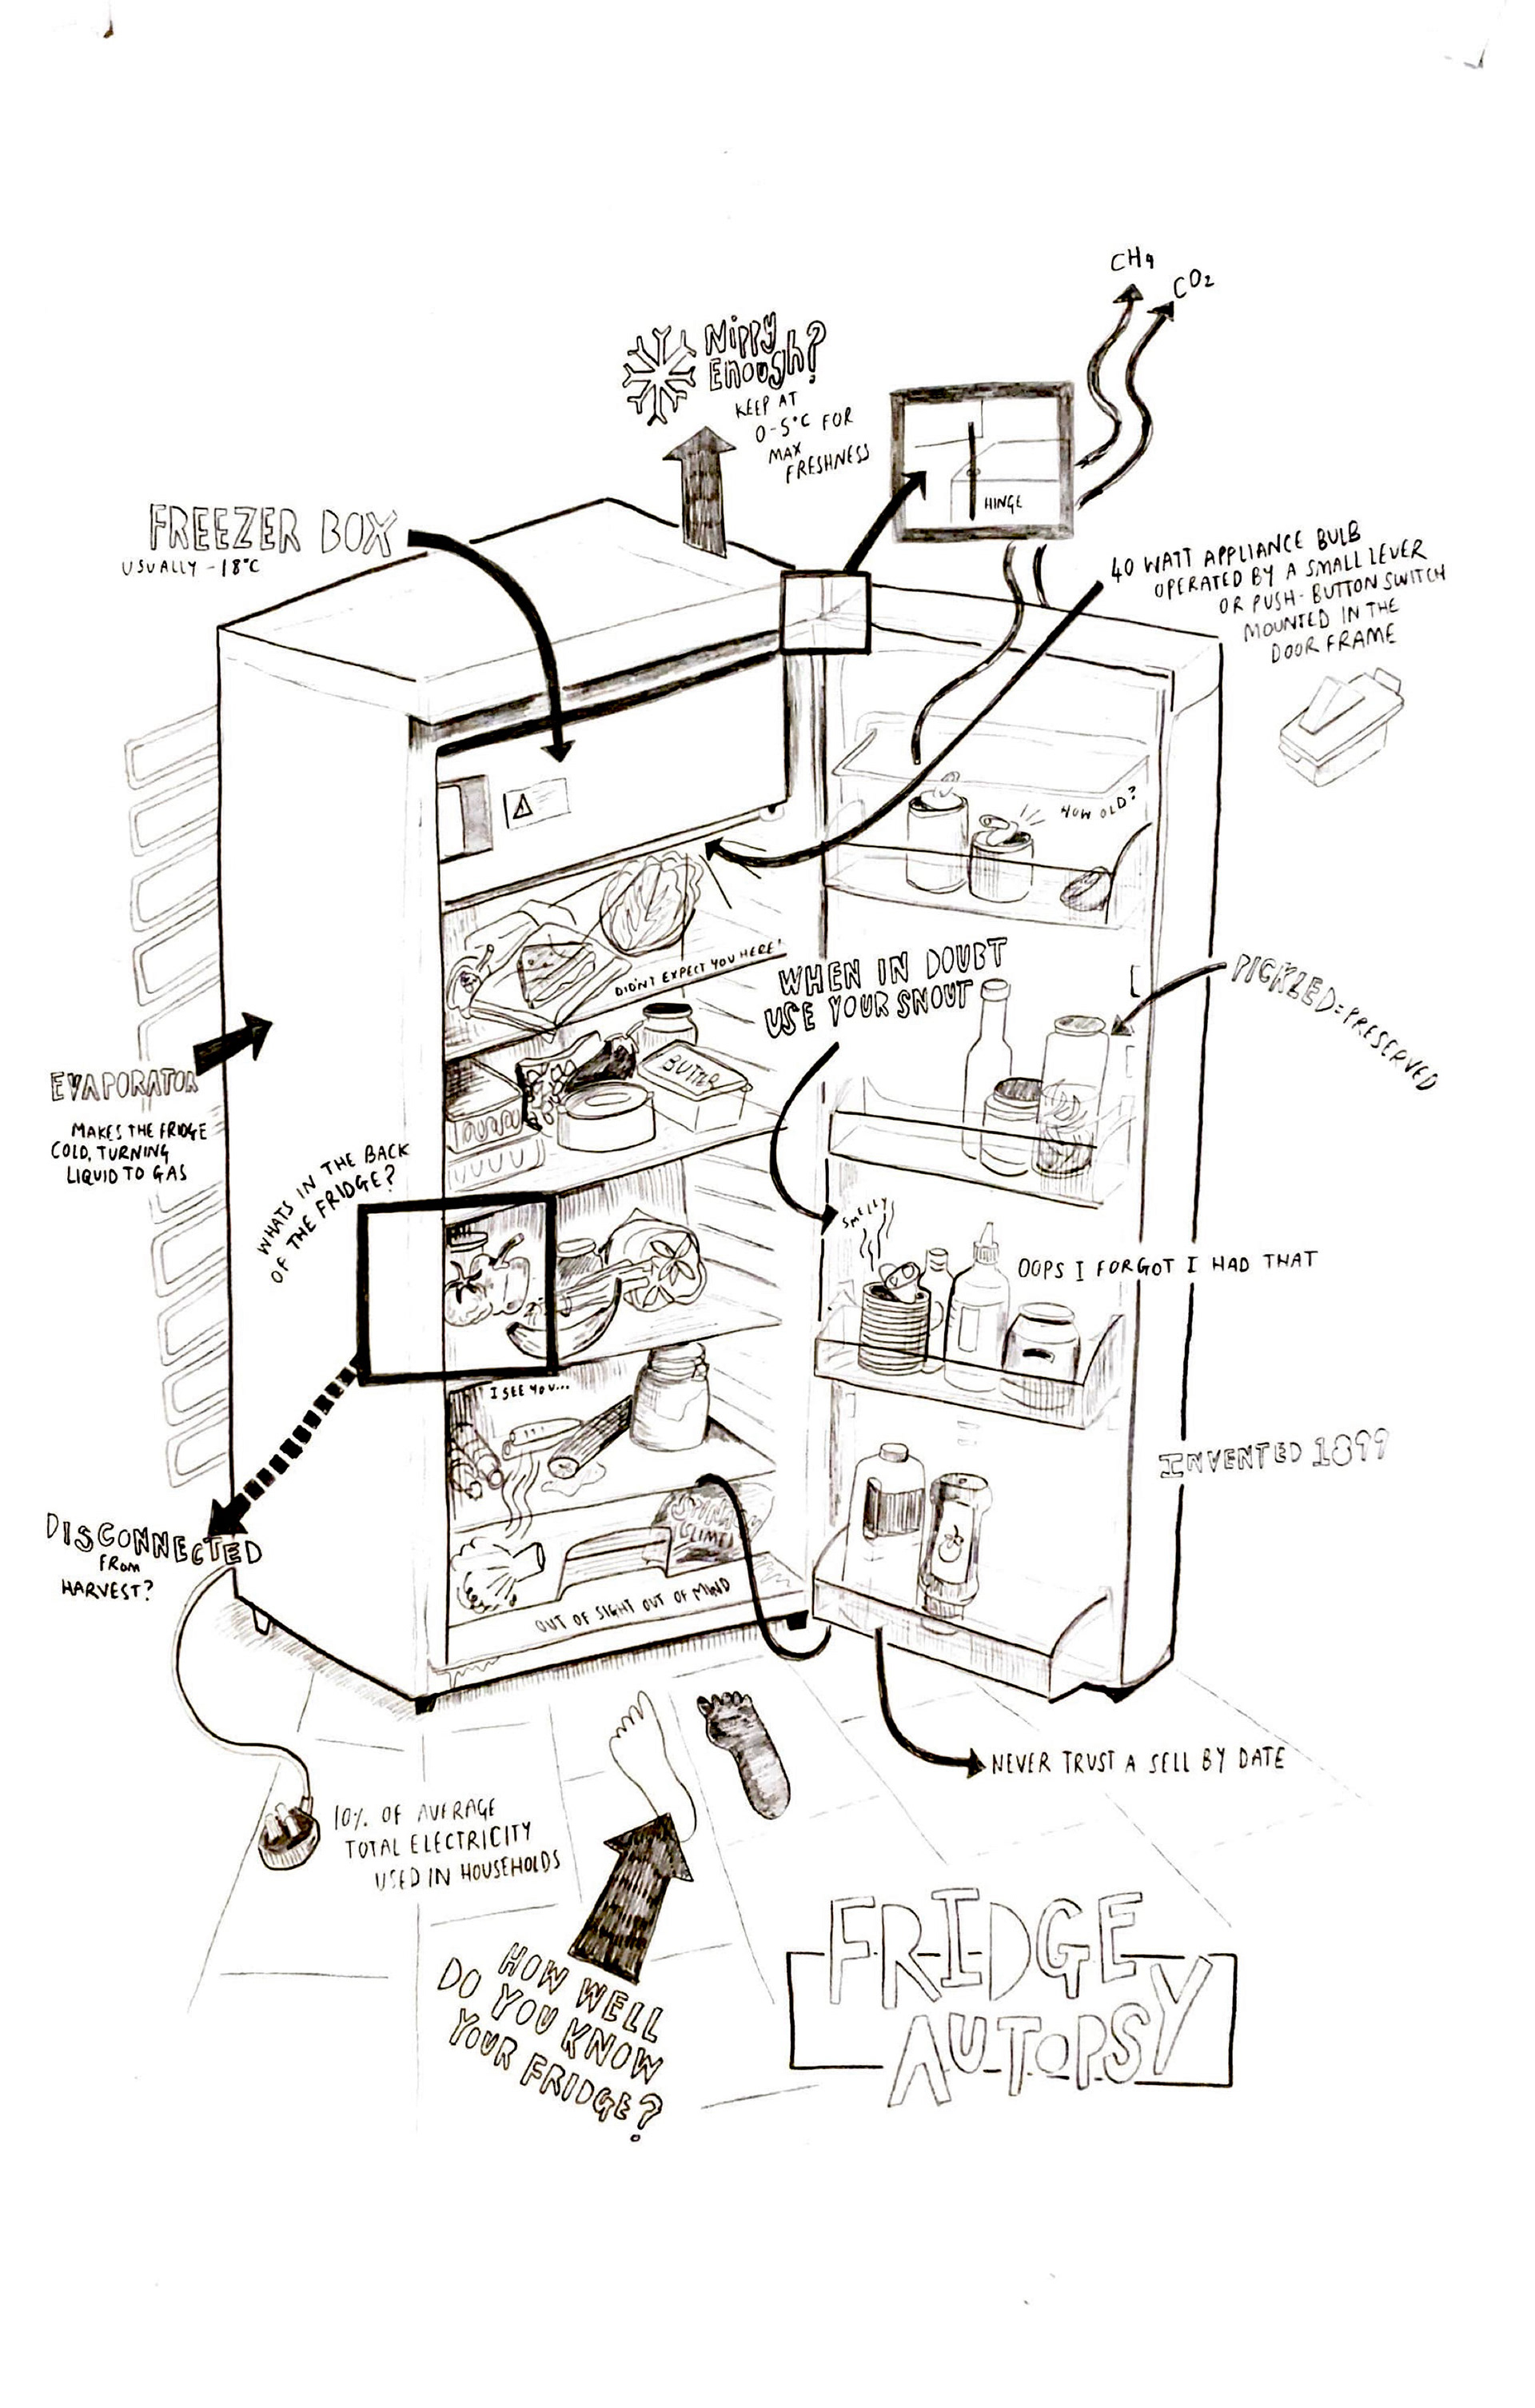 CH4
CO2
Nippy
Enough?
KEEP AT
0-5°C FOR
MAX
FRESHNESS
HINGE
FREEZER BOX
USUALLY -18°C
40 WATT APPLIANCE BULB
OPERATED BY A SMALL LEVER
OR PUSH-BUTTON SWITCH
MOUNTED IN THE
DOOR FRAME
HOW OLD?
DIDN'T EXPECT YOU HERE!
WHEN IN DOUBT
USE YOUR SNOUT
PICKLED=PRESERVED
BUTTER
EVAPORATOR
MAKES THE FRIDGE
COLD, TURNING
LIQUID TO GAS
WHATS IN THE BACK
OF THE FRIDGE?
SMELLY
OOPS I FORGOT I HAD THAT
I SEE YOU...
INVENTED 1899
SPINACH
SLIME!
DISCONNECTED
FROM
HARVEST?
OUT OF SIGHT OUT OF MIND
NEVER TRUST A SELL BY DATE
10% OF AVERAGE
TOTAL ELECTRICITY
USED IN HOUSEHOLDS
HOW WELL
DO YOU KNOW
YOUR FRIDGE?
FRIDGE
AUTOPSY